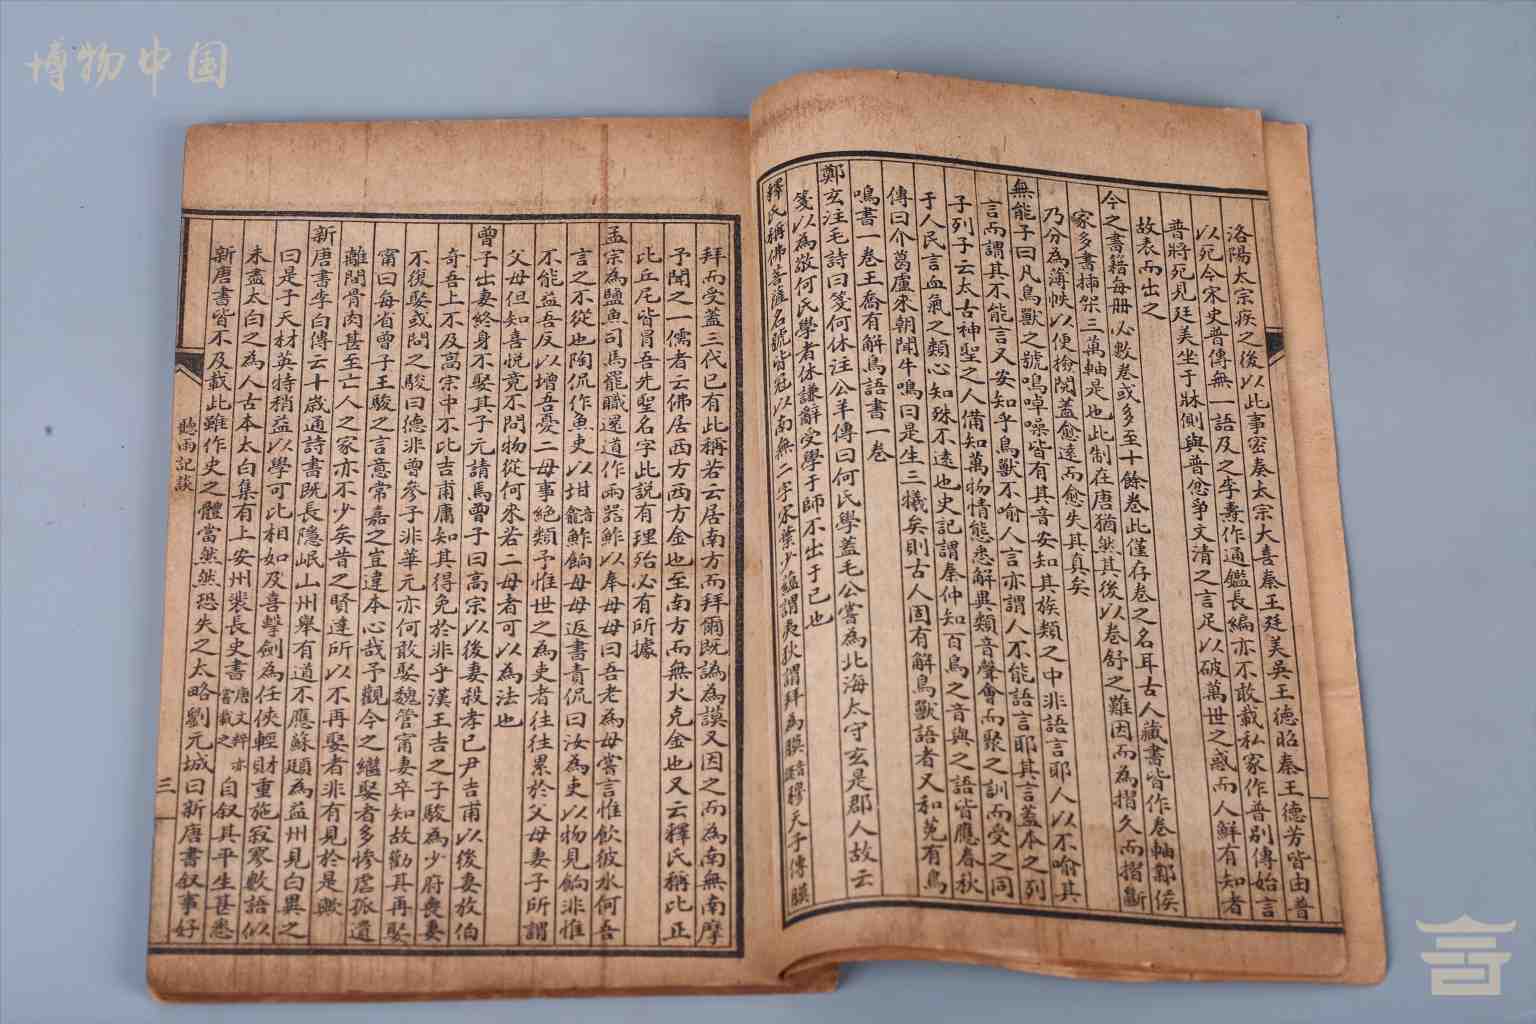 博物中国
洛陽太宗疾之後以此事密奏太宗大喜秦王廷美吳王德昭秦王德芳皆由普
以死今宋史普傳無一語及之李燾作通鑑長編亦不敢載私家作普別傳始言
普將死見廷美坐于牀側與普忿爭文清之言足以破萬世之惑而人鮮有知者
故表而出之
今之書籍每冊必數卷或多至十餘卷此僅存卷之名耳古人藏書皆作卷軸鄴侯
家多書插架三萬軸是也此制在唐猶然其後以卷舒之難因而為摺久而摺斷
乃分為薄帙以便檢閱蓋愈遠而愈失其真矣
無能子曰凡鳥獸之號鳴啅噪皆有其音安知其族類之中非語言耶人以不喻其
言而謂其不能言又安知乎鳥獸不喻人言亦謂人不能語言耶其言蓋本之列
子列子云太古神聖之人備知萬物情態悉解異類音聲會而聚之訓而受之同
于人民言血氣之類心知殊不遠也史記謂秦仲知百鳥之音與之語皆應春秋
傳曰介葛盧來朝聞牛鳴曰是生三犧矣則古人固有解鳥獸語者又和菟有鳥
鳴書一卷王喬有解鳥語書一卷
鄭玄注毛詩曰箋何休注公羊傳曰何氏學蓋毛公嘗為北海太守玄是郡人故云
箋以為敬何氏學者休謙辭受學于師不出于己也
釋氏稱佛菩薩名號皆冠以南無二字宋葉少蘊謂夷狄謂拜為膜音謨穆天子傳膜
拜而受蓋三代已有此稱若云居南方而拜爾既譌為謨又因之而為南無南摩
予聞之一儒者云佛居西方西方金也至南方而無火克金也又云釋氏稱比丘
比丘尼皆冒吾先聖名字此說有理殆必有所據
孟宗為鹽魚司馬罷職還道作兩器鮓以奉母母曰吾老為母嘗言惟飲彼水何吾
言之不從也陶侃作魚吏以坩龕鮓餉母母返書責侃曰汝為吏以物見餉非惟
不能益吾反以增吾憂二母事絕類予惟世之為吏者往往累於父母妻子所謂
父母但知喜悅竟不問物從何來若二母者可以為法也
曾子出妻終身不娶其子元請焉曾子曰高宗以後妻殺孝己尹吉甫以後妻放伯
奇吾上不及高宗中不比吉甫庸知其得免於非乎漢王吉之子駿為少府喪妻
不復娶或問之駿曰德非曾參子非華元亦何敢娶魏管甯妻卒知故勸其再娶
甯曰每省曾子王駿之言意常嘉之豈違本心哉予觀今之繼娶者多慘虐孤遺
離間骨肉甚至亡人之家亦不少矣昔之賢達所以不再娶者非有見於是歟
新唐書李白傳云十歲通詩書既長隱岷山州舉有道不應蘇頲為益州見白異之
曰是子天材英特稍益以學可比相如及喜擊劍為任俠輕財重施寂寥數語似
未盡太白之為人古本太白集有上安州裴長史書唐文粹亦嘗載之自叙其平生甚悉
新唐書皆不及載此雖作史之體當然然恐失之太略劉元城曰新唐書叙事好
聽雨記談
三